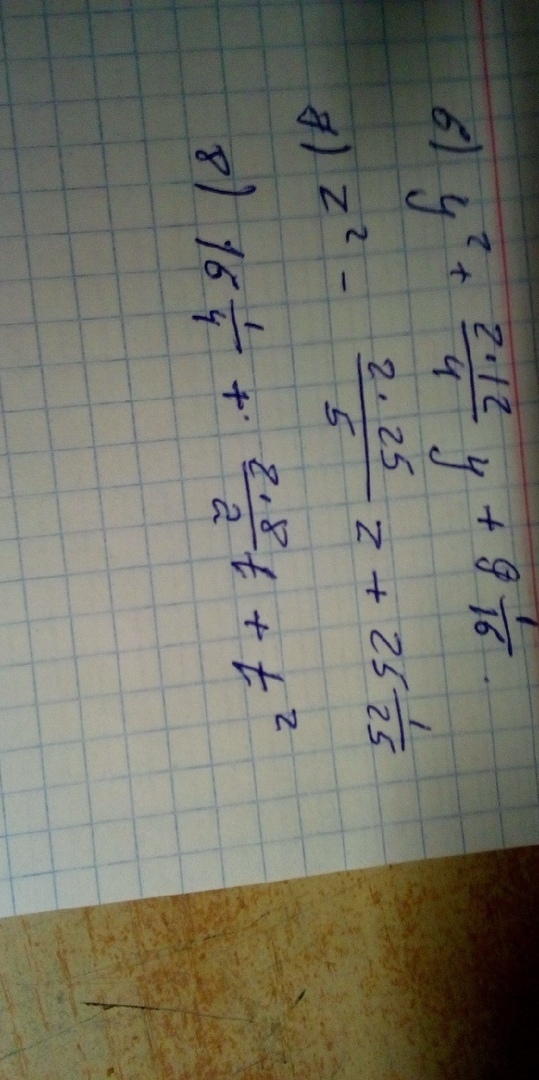 6) y² + 2·12/4 y + 9 1/16.
7) z² - 2·25/5 z + 25 1/25
8) 16 1/4 + 2·8/2 t + t²